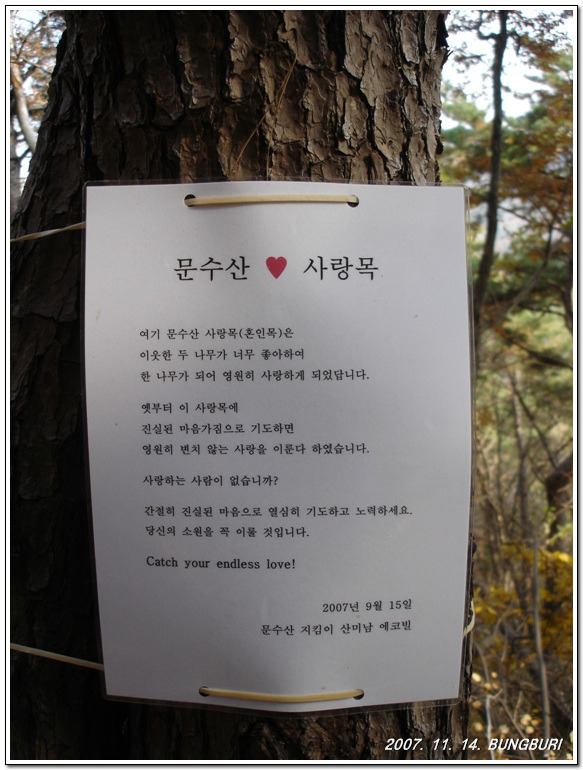 문수산 ♥ 사랑목
여기 문수산 사랑목(혼인목)은
이웃한 두 나무가 너무 좋아하여
한 나무가 되어 영원히 사랑하게 되었답니다.
옛부터 이 사랑목에
진실된 마음가짐으로 기도하면
영원히 변치 않는 사랑을 이룬다 하였습니다.
사랑하는 사람이 없습니까?
간절히 진실된 마음으로 열심히 기도하고 노력하세요.
당신의 소원을 꼭 이룰 것입니다.
Catch your endless love!
2007년 9월 15일
문수산 지킴이 산미남 에코빌
2007. 11. 14. BUNGBURI